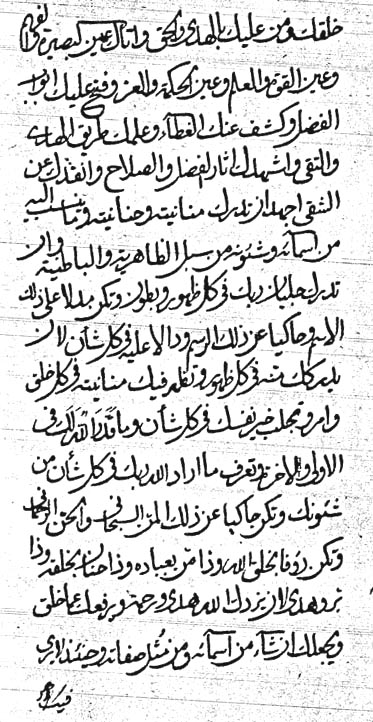 خلقك ومن عليك بالهدى والحق واتاك عين البصيرة
وعين القوة والعلم وعين الحكمة والعز وفتح عليك ابواب
الفضل وكشف عنك الغطاء وعلمك طريق الهدى
والتقى واشهدك اثار الفضل والصلاح وانقذك عن
الشقى اجهد ان تدرك منانيته وحنانيته وما نسب اليه
من اسمائه وشئونه من سبل الظاهرية والباطنية وان
تدرك تجليات ربك في كل ظهور وبطون وتكن مدلا على ذلك
الاسم وحاكيا عن ذلك الرسم ودالا عليه في كل شأن لان
يدركك منه في كل ظهور وتظهر فيك منانيته في كل خلق
وامر وتجلب خير نفسك في كل شأن وما قدر الله لك في
الاولى والاخرة وتعرف ما اراد الله ربك في كل شأن من
شئونك وتكن حاكيا عن ذلك المن السبحاني والحق
وتكن رؤفا بخلق الله وذا من بعباده وذا حنان بخلقه وذا
بر وهدى ان يزدك الله هدى ورحمة ويرفعك عما خلق
ويجعلك ان شاء من اسمائه ومن مثل صفاته وحينئذ لا يرى
فيك